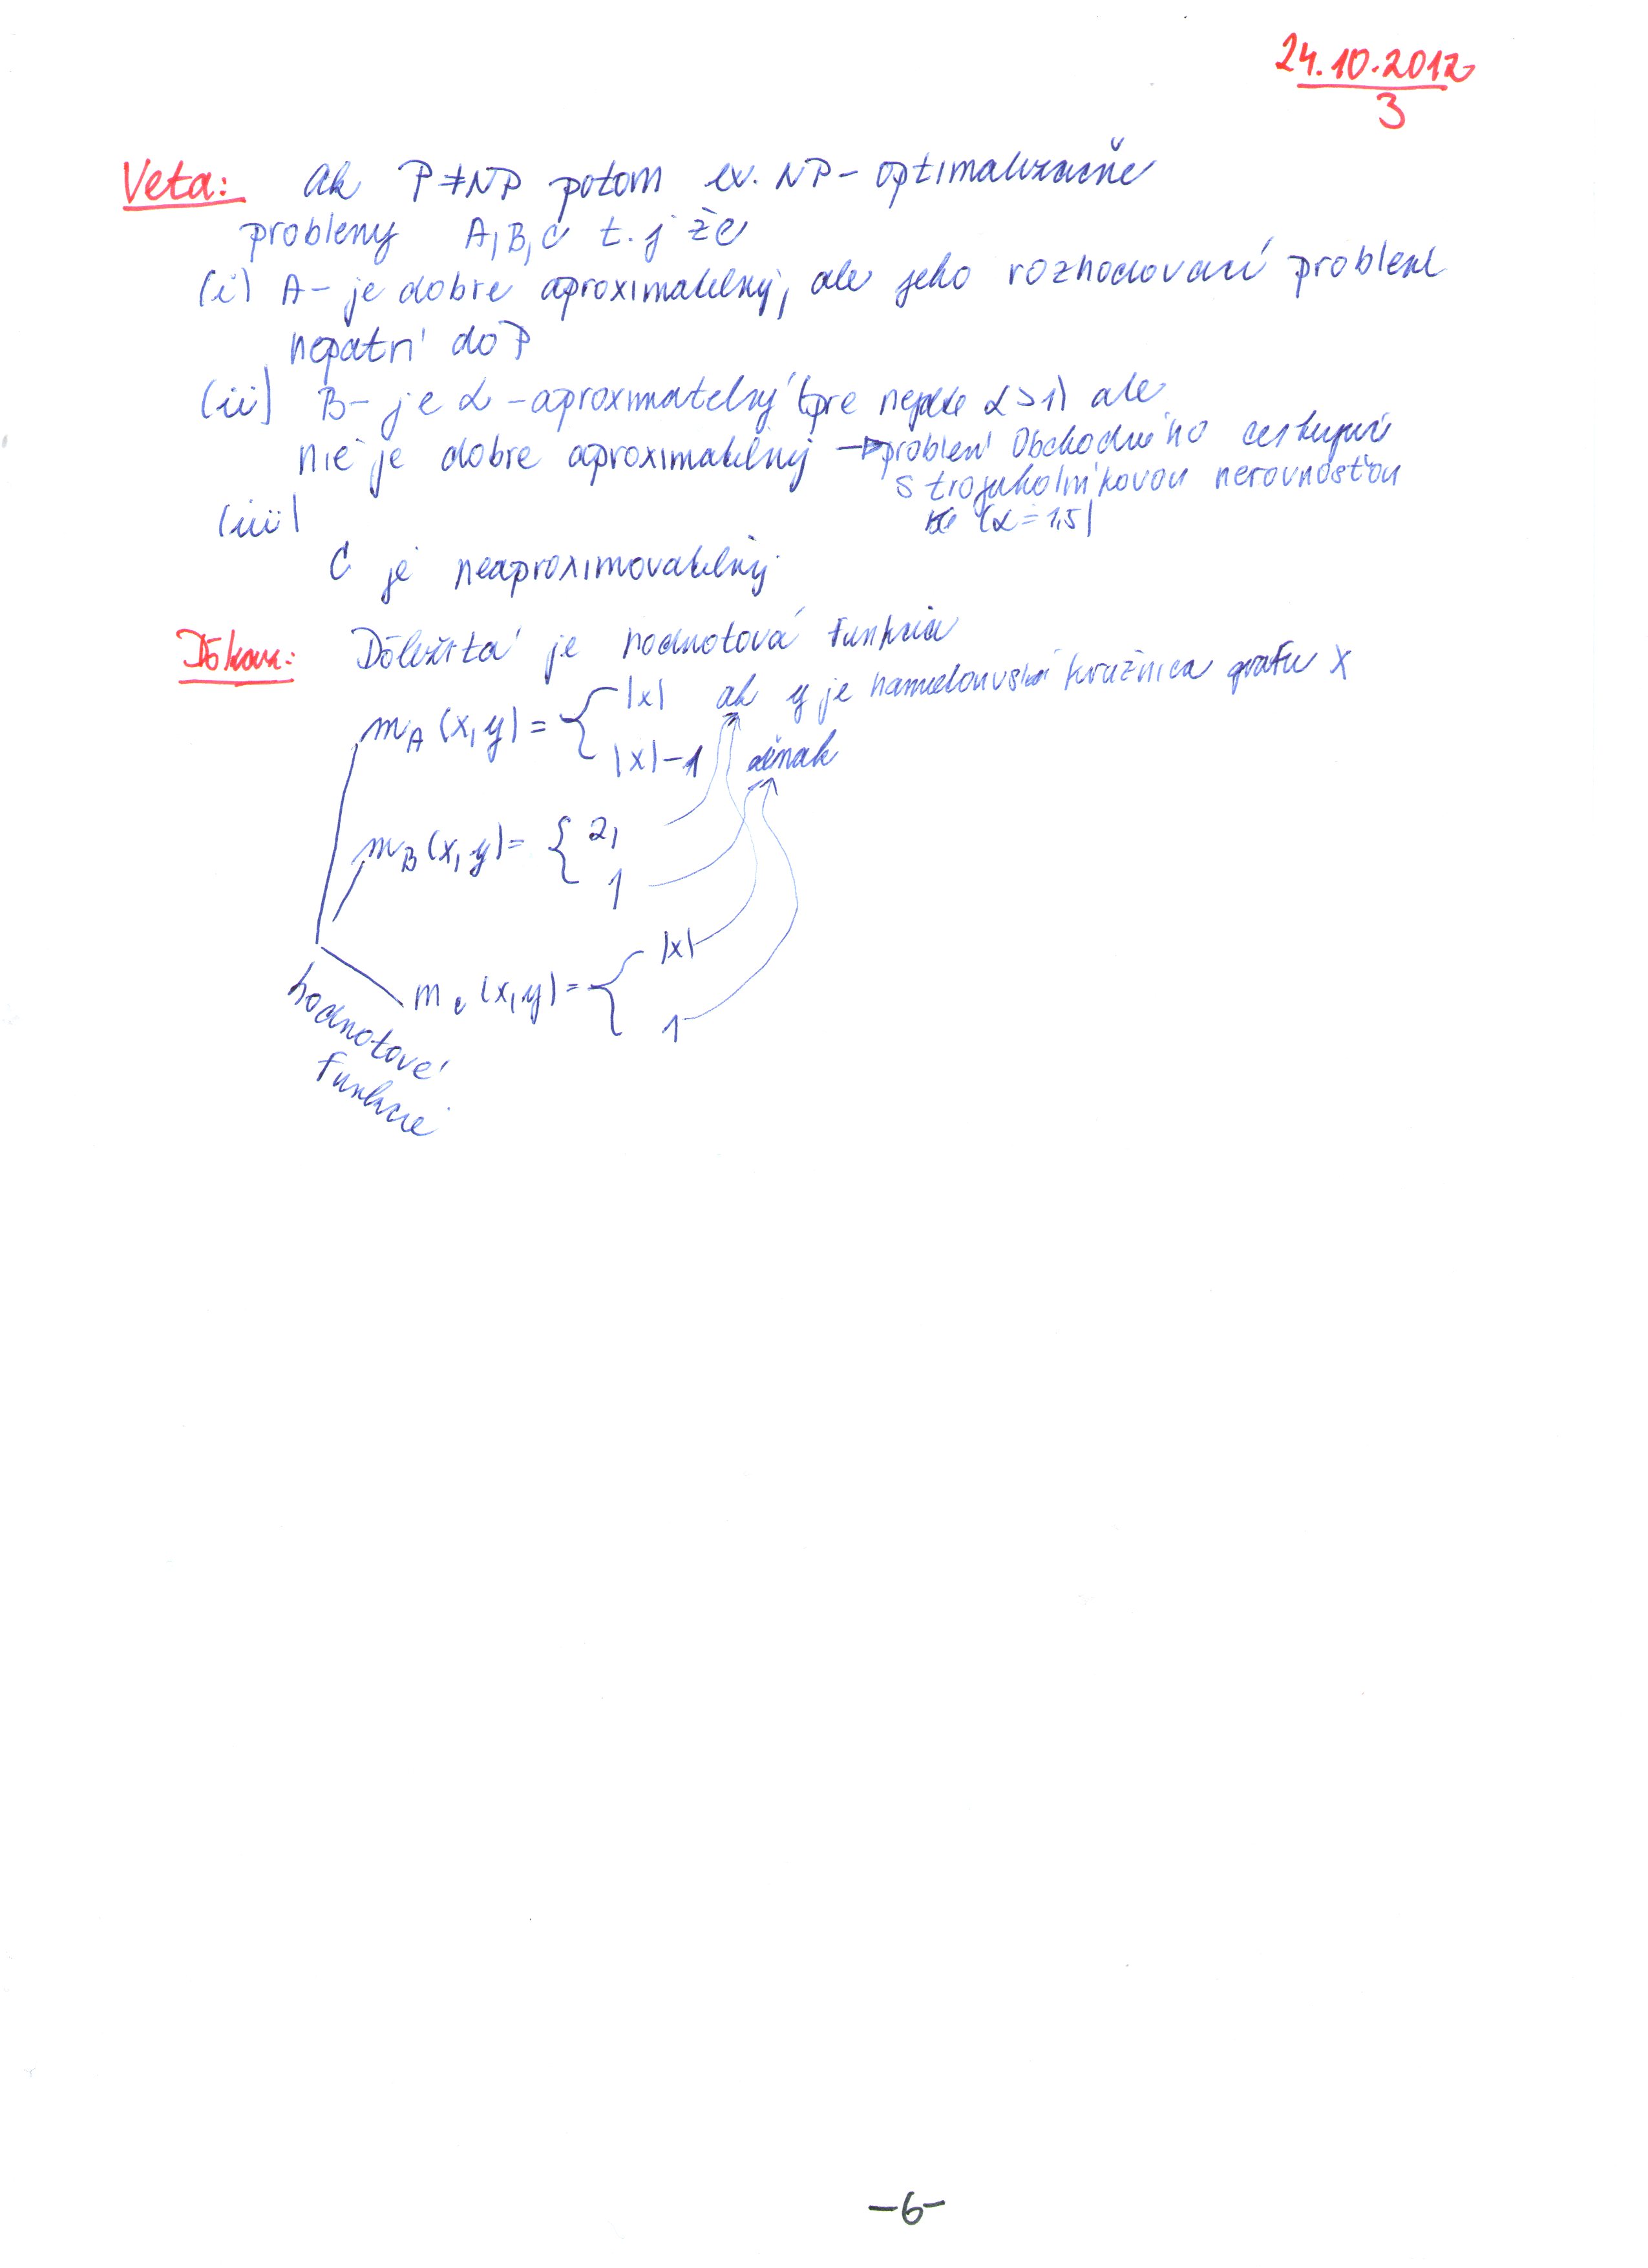 24.10.2012
3
Veta: Ak P≠NP potom ex. NP-optimalizačné
problemy A, B, C t. j že
(i) A - je dobre aproximatelný, ale jeho rozhodovací problem
nepatrí do P
(ii) B - je α-aproximatelný (pre nejake α>1) ale
nie je dobre aproximatelný → problem Obchodného cestujuci
s trojuholníkovou nerovnosťou
(α = 1,5)
(iii)
C je neaproximovatelný
Dôkaz: Dôležitá je hodnotová funkcia
m_A (x, y) = { |x| ak y je hamiltonovská kružnica grafu X
|x|-1 inak
m_B (x, y) = { 2,
1
m_C (x, y) = { |x|
1
hodnotové
funkcie
-6-